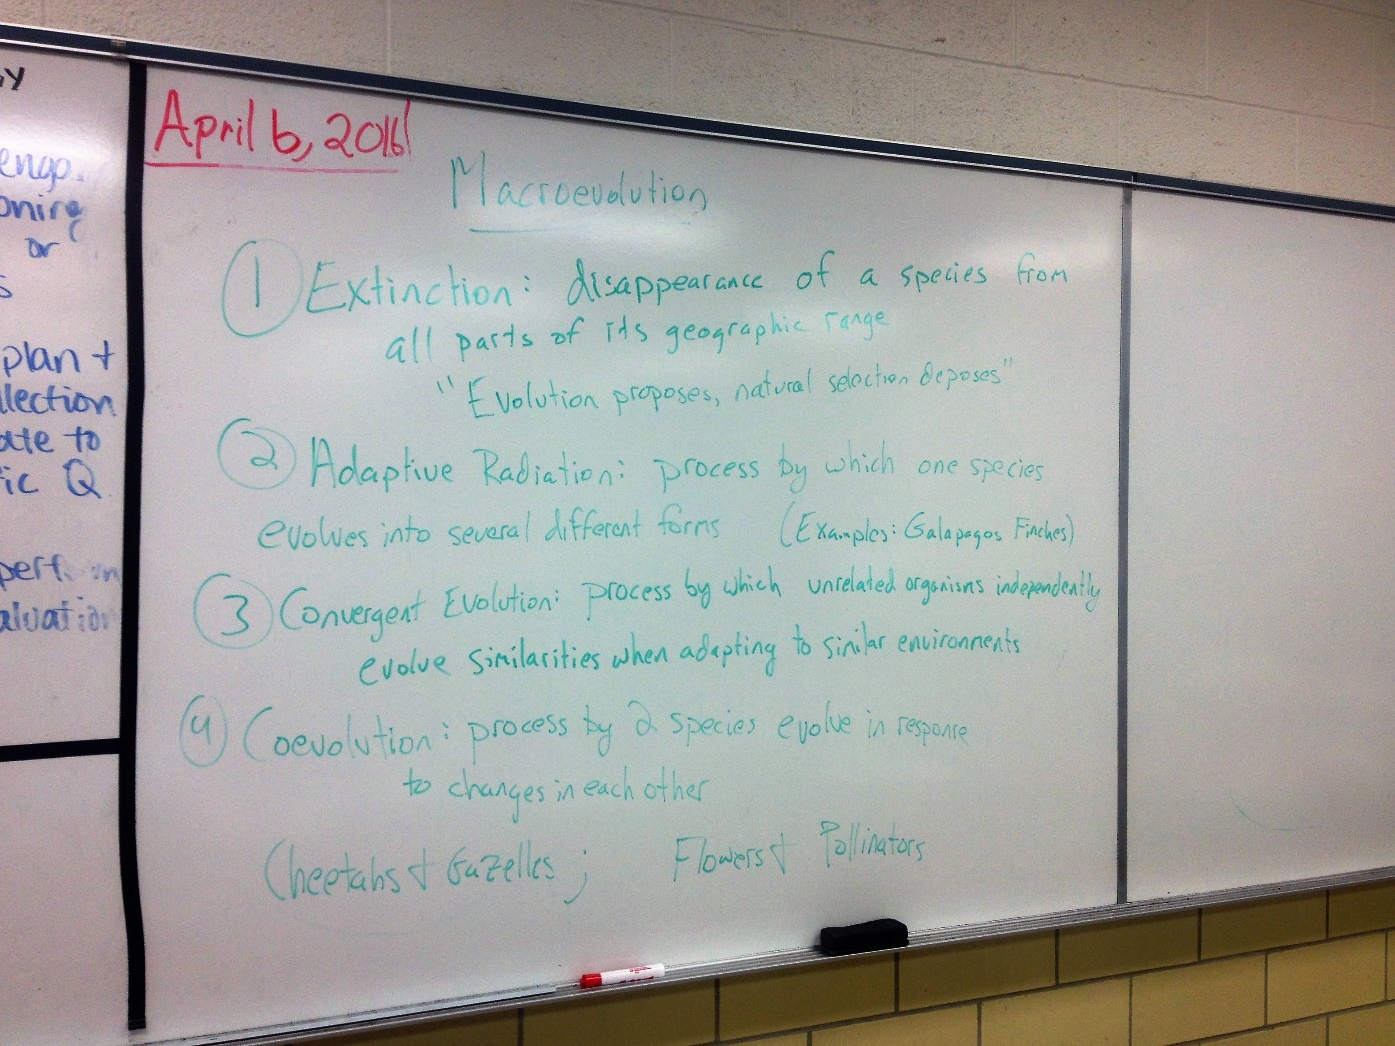 April 6, 2016
Macroevolution
1 Extinction: disappearance of a species from
all parts of its geographic range
"Evolution proposes, natural selection deposes"
2 Adaptive Radiation: process by which one species
evolves into several different forms (Examples: Galapagos Finches)
3 Convergent Evolution: process by which unrelated organisms independently
evolve similarities when adapting to similar environments
4 Coevolution: process by 2 species evolve in response
to changes in each other
Cheetahs & Gazelles; Flowers & Pollinators
or
plan +
llection
ate to
ic Q
aluation